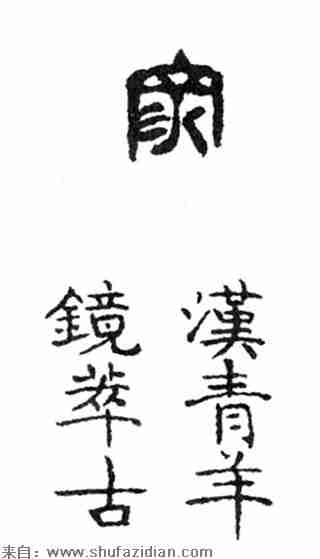 家
漢青羊
鏡萃古
来自: www.shufazidian.com